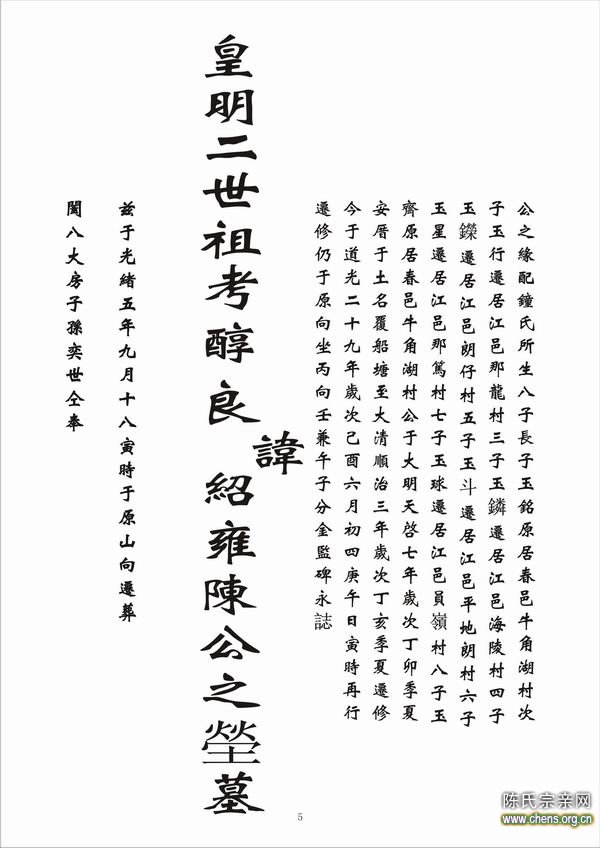 公之緣配鐘氏所生八子長子玉銘原居春邑牛角湖村次
子玉行遷居江邑那龍村三子玉鏻遷居江邑海陵村四子
玉鑅遷居江邑朗仔村五子玉斗遷居江邑平地朗村六子
玉星遷居江邑那篤村七子玉球遷居江邑員嶺村八子玉
齊原居春邑牛角湖村公于大明天啓七年歲次丁卯季夏
安厝于土名覆船塘至大清順治三年歲次丁亥季夏遷修
今于道光二十九年歲次己酉六月初四庚午日寅時再行
遷修仍于原向坐丙向壬兼午子分金監碑永誌
皇明二世祖考醇良諱紹雍陳公之塋墓
兹于光緒五年九月十八寅時于原山向遷葬
閩八大房子孫奕世仝奉
5
陈氏宗亲网
www.chens.org.cn